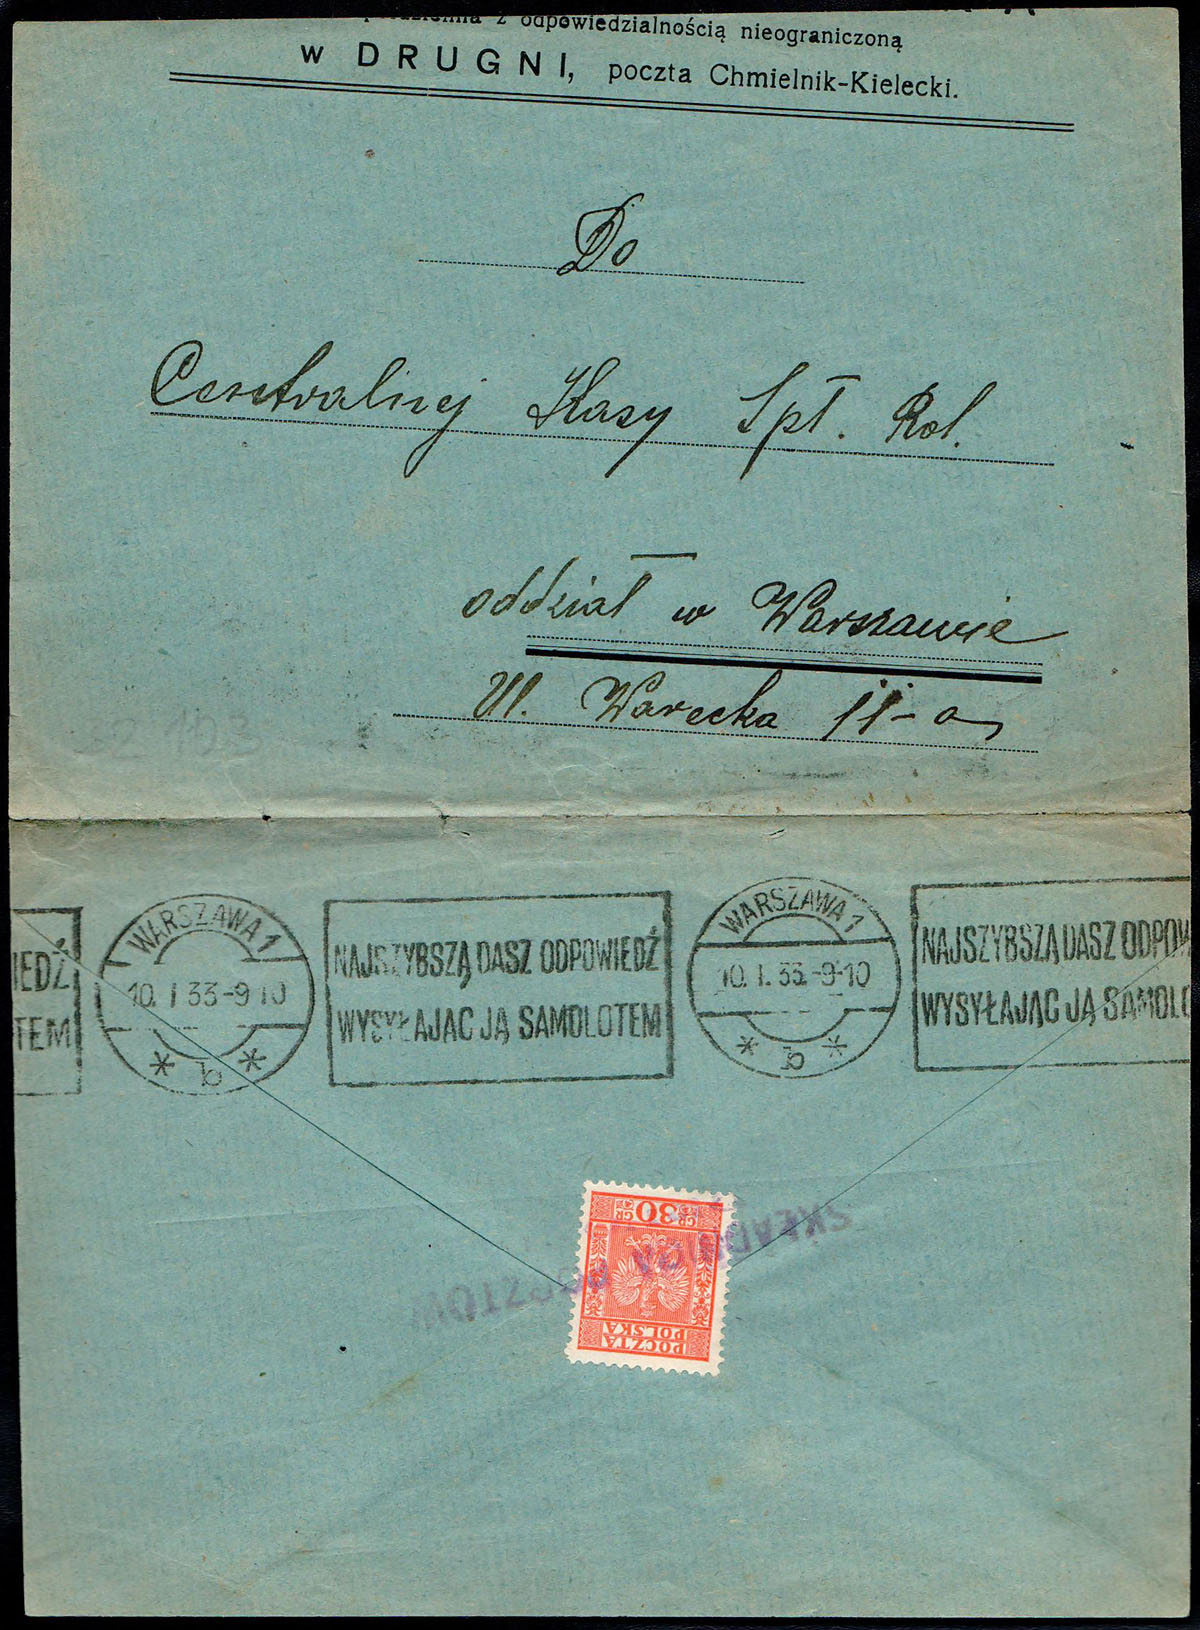 z odpowiedzialnością nieograniczoną
w DRUGNI, poczta Chmielnik-Kielecki.
Do
Centralnej Kasy Spł. Rol.
oddział w Warszawie
Ul. Warecka 11-a
IEDŹ
TEM
WARSZAWA 1
10. I 33-9 10
* b *
NAJSZYBSZĄ DASZ ODPOWIEDŹ
WYSYŁAJĄC JĄ SAMOLOTEM
WARSZAWA 1
10. I. 33.-9-10
* *
NAJSZYBSZĄ DASZ ODPOW
WYSYŁAJĄC JĄ SAMOLO
GR 30 GR
POCZTA
POLSKA